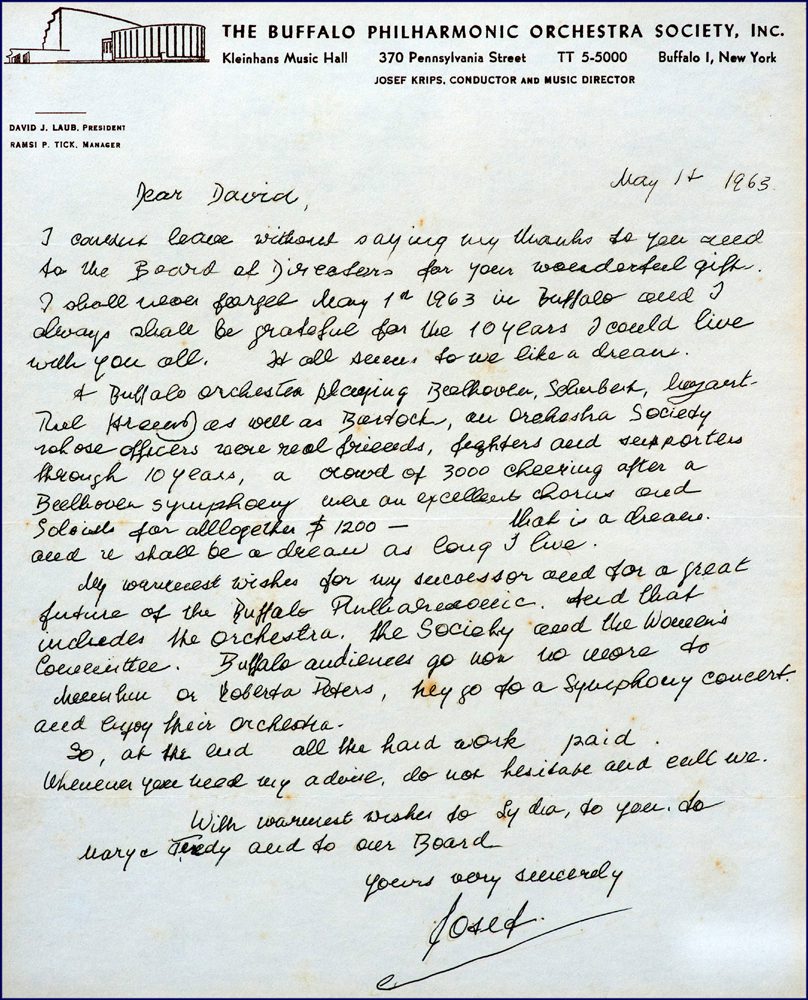 THE BUFFALO PHILHARMONIC ORCHESTRA SOCIETY, INC.
Kleinhans Music Hall 370 Pennsylvania Street TT 5-5000 Buffalo 1, New York
JOSEF KRIPS, CONDUCTOR AND MUSIC DIRECTOR
DAVID J. LAUB, PRESIDENT
RAMSI P. TICK, MANAGER
May 1st 1963
Dear David,
I couldn't leave without saying my thanks to you and
to the Board of Directors for your wonderful gift.
I shall never forget May 1st 1963 in Buffalo and I
always shall be grateful for the 10 years I could live
with you all. It all seems to me like a dream.
A Buffalo orchestra playing Beethoven, Schubert, Mozart
as well as Bartock, an Orchestra Society
whose officers were real friends, fighters and supporters
through 10 years, a crowd of 3000 cheering after a
Beethoven symphony were an excellent chorus and
Soloists for alltogether $ 1200 — that is a dream.
and it shall be a dream as long I live.
My warmest wishes for my successor and for a great
future of the Buffalo Philharmonic. And that
includes the orchestra, the Society and the Women's
Committee. Buffalo audiences go now no more to
Menuhin or Roberta Peters, they go to a Symphony concert
and enjoy their orchestra.
So, at the end all the hard work paid.
Whenever you need my advise, do not hesitate and call me.
With warmest wishes to Lydia, to you, to
and to our Board
yours very sincerely
Josef.